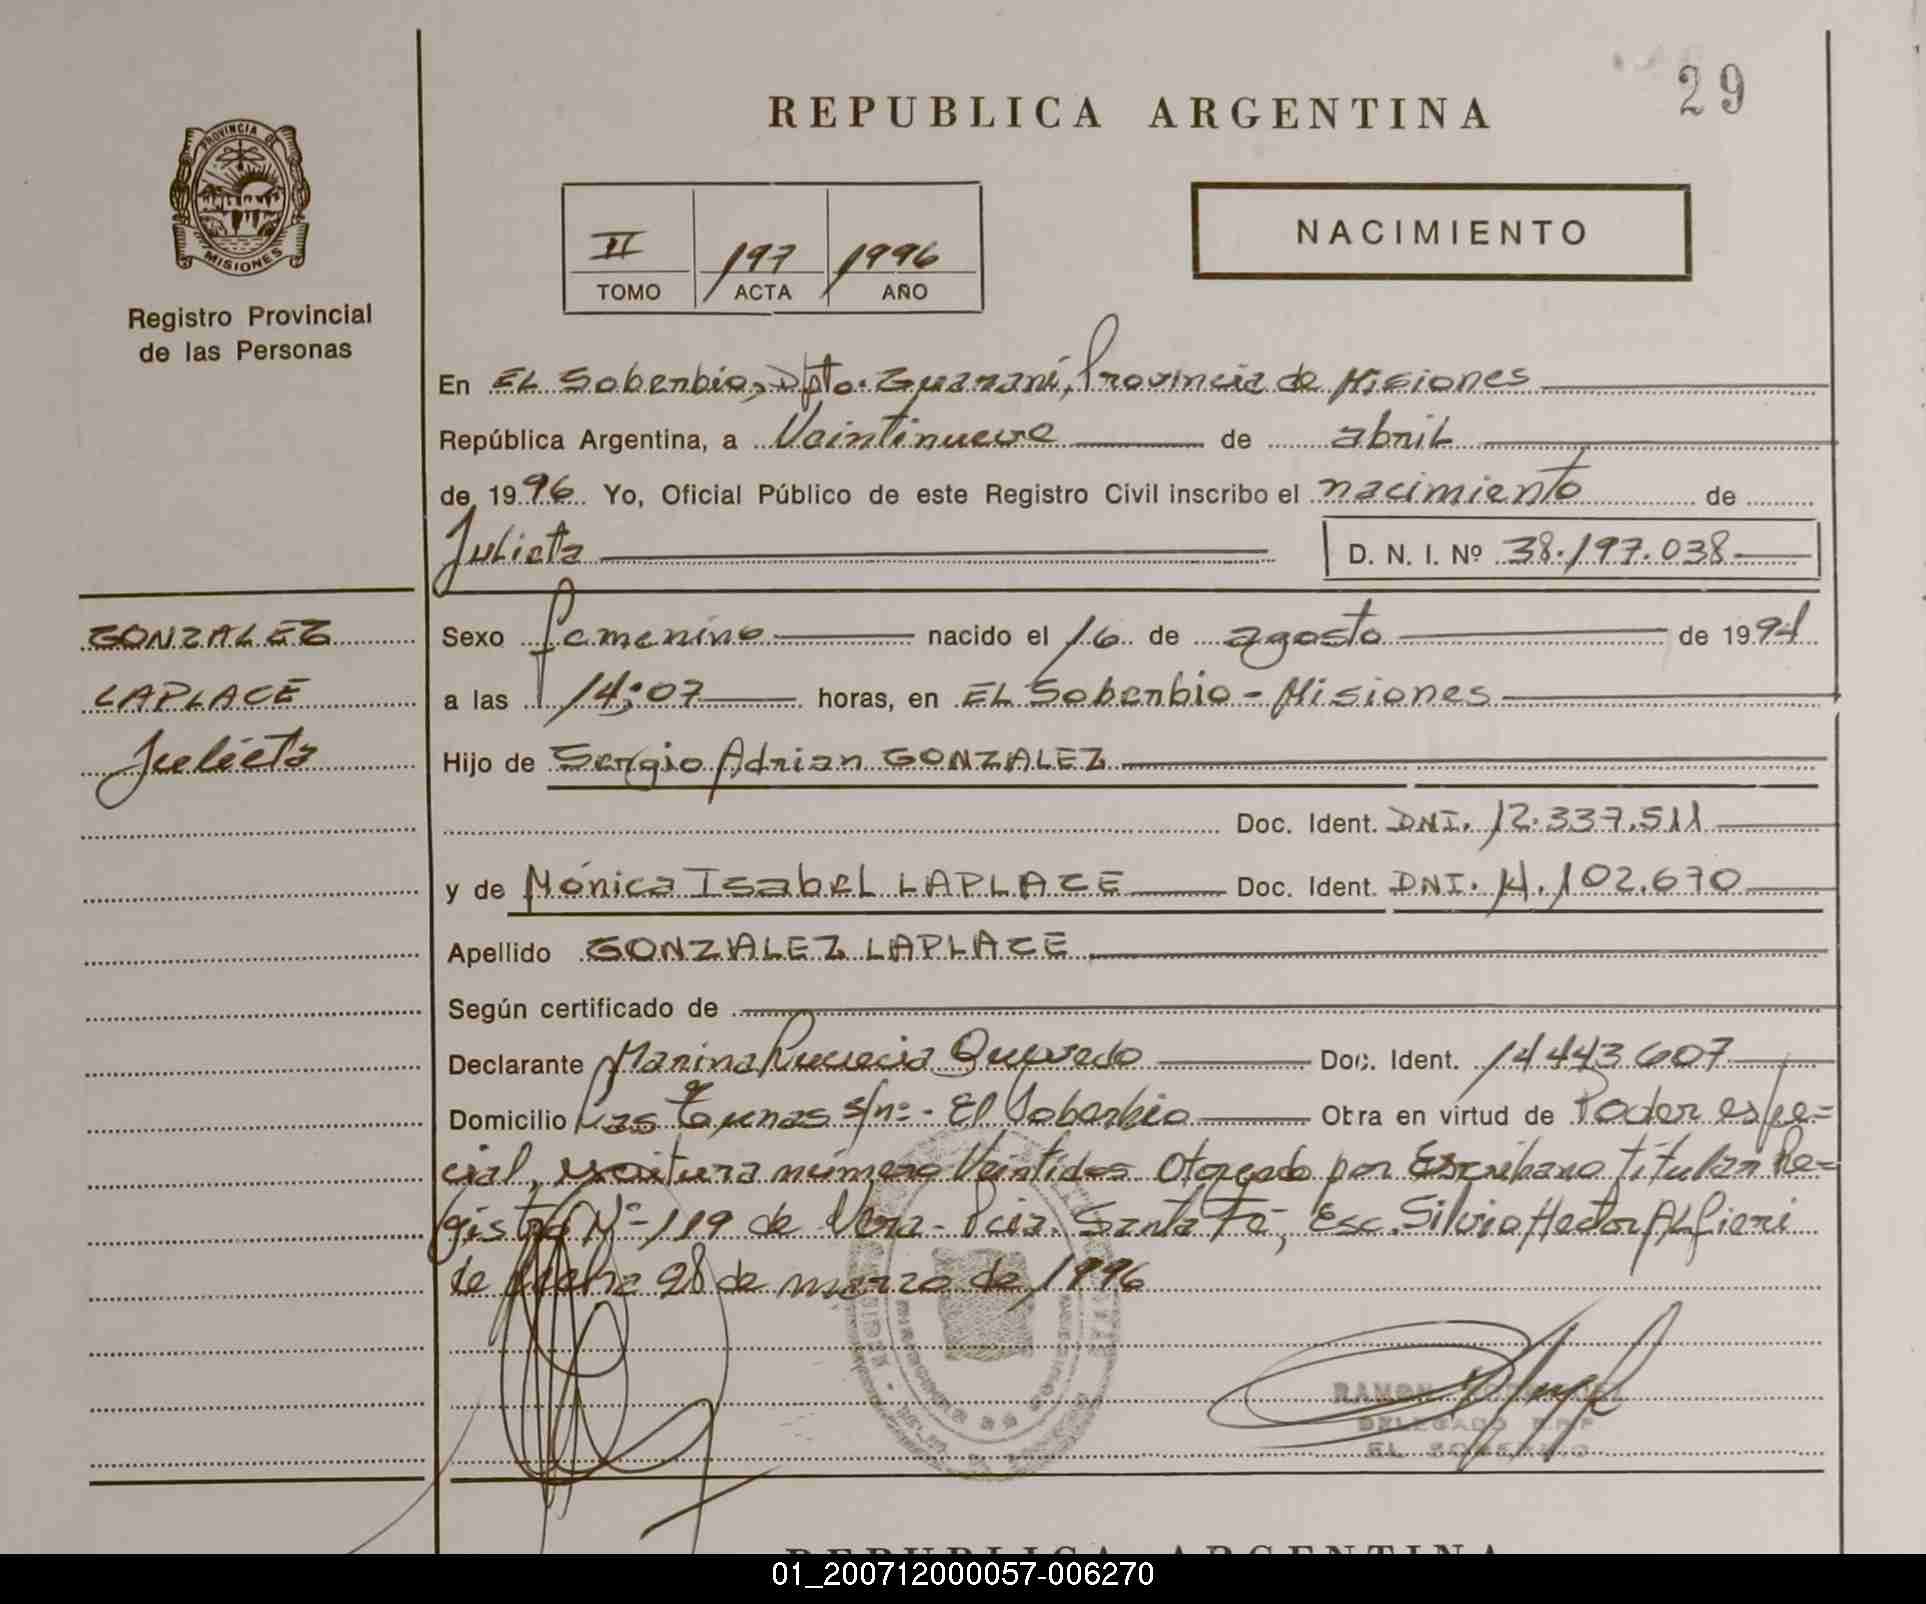 29
REPUBLICA ARGENTINA
PROVINCIA DE
MISIONES
Registro Provincial
de las Personas
II 197 1996
TOMO ACTA AÑO
NACIMIENTO
En EL Soberbio, Dpto. Guaraní, Provincia de Misiones
República Argentina, a Veintinueve de abril
de 1996 Yo, Oficial Público de este Registro Civil inscribo el nacimiento de
Julieta D. N. I. Nº 38.197.038
GONZALEZ
LAPLACE
Julieta
Sexo femenino nacido el 16 de agosto de 1994
a las 14:07 horas, en EL Soberbio - Misiones
Hijo de Sergio Adrian GONZALEZ
Doc. Ident. DNI. 12.337.511
y de Mónica Isabel LAPLACE Doc. Ident. DNI. 14.102.670
Apellido GONZALEZ LAPLACE
Según certificado de
Declarante Marina Quevedo Doc. Ident. 14443607
Domicilio Las Tunas s/nº - El Soberbio Obra en virtud de Poder espe=
cial, escritura número Veintidos Otorgado por Escribano titular Re=
gistro Nº 119 de Vera - Pcia. Santa Fe, Esc. Silvio Hector ALfieri
de fecha 28 de marzo de 1996
RAMON
DELEGADO R.P.P
EL SOBERBIO
REPUBLICA ARGENTINA
01_200712000057-006270